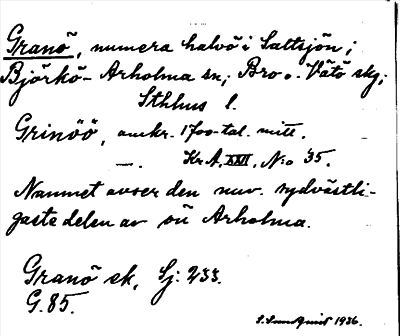 Granö, numera halvö i Saltsjön;
Björkö-Arholma sn; Bro o. Vätö skg;
Sthlms l.
Grinöö, omkr. 1700-tal. mitt.
—. Kr A. XXII, N:o 35.
Namnet avser den nuv. sydvästli-
gaste delen av ön Arholma.
Granö ek, Sj: 233.
G. 85.
S. Sundquist 1936.